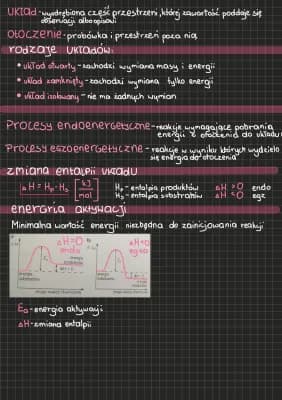 UKŁAD - wyodrębniona część przestrzeni, której zawartość poddaje się
obserwacji albo opisowi
OTOCZENIE - probówka i przestrzeń poza nią
rodzaje UKŁADÓW:
• układ otwarty - zachodzi wymiana masy i energii
• układ zamknięty - zachodzi wymiana tylko energii
• układ izolowany - nie ma żadnych wymian
Procesy endoenergetyczne - reakcje wymagające pobrania
energii z otoczenia do układu
Procesy egzoenergetyczne - reakcje w wyniku których wydzieła
się energia do otoczenia
zmiana entalpii układu
ΔH = Hp - Hs [kJ/mol]
Hp - entalpia produktów ΔH > 0 endo
Hs - entalpia substratów ΔH < 0 egz
energia aktywacji
Minimalna wartość energii niezbędna do zainicjowania reakcji
ΔH>0
endo
ΔH<0
egzo
Ea - energia aktywacji
ΔH - zmiana entalpii